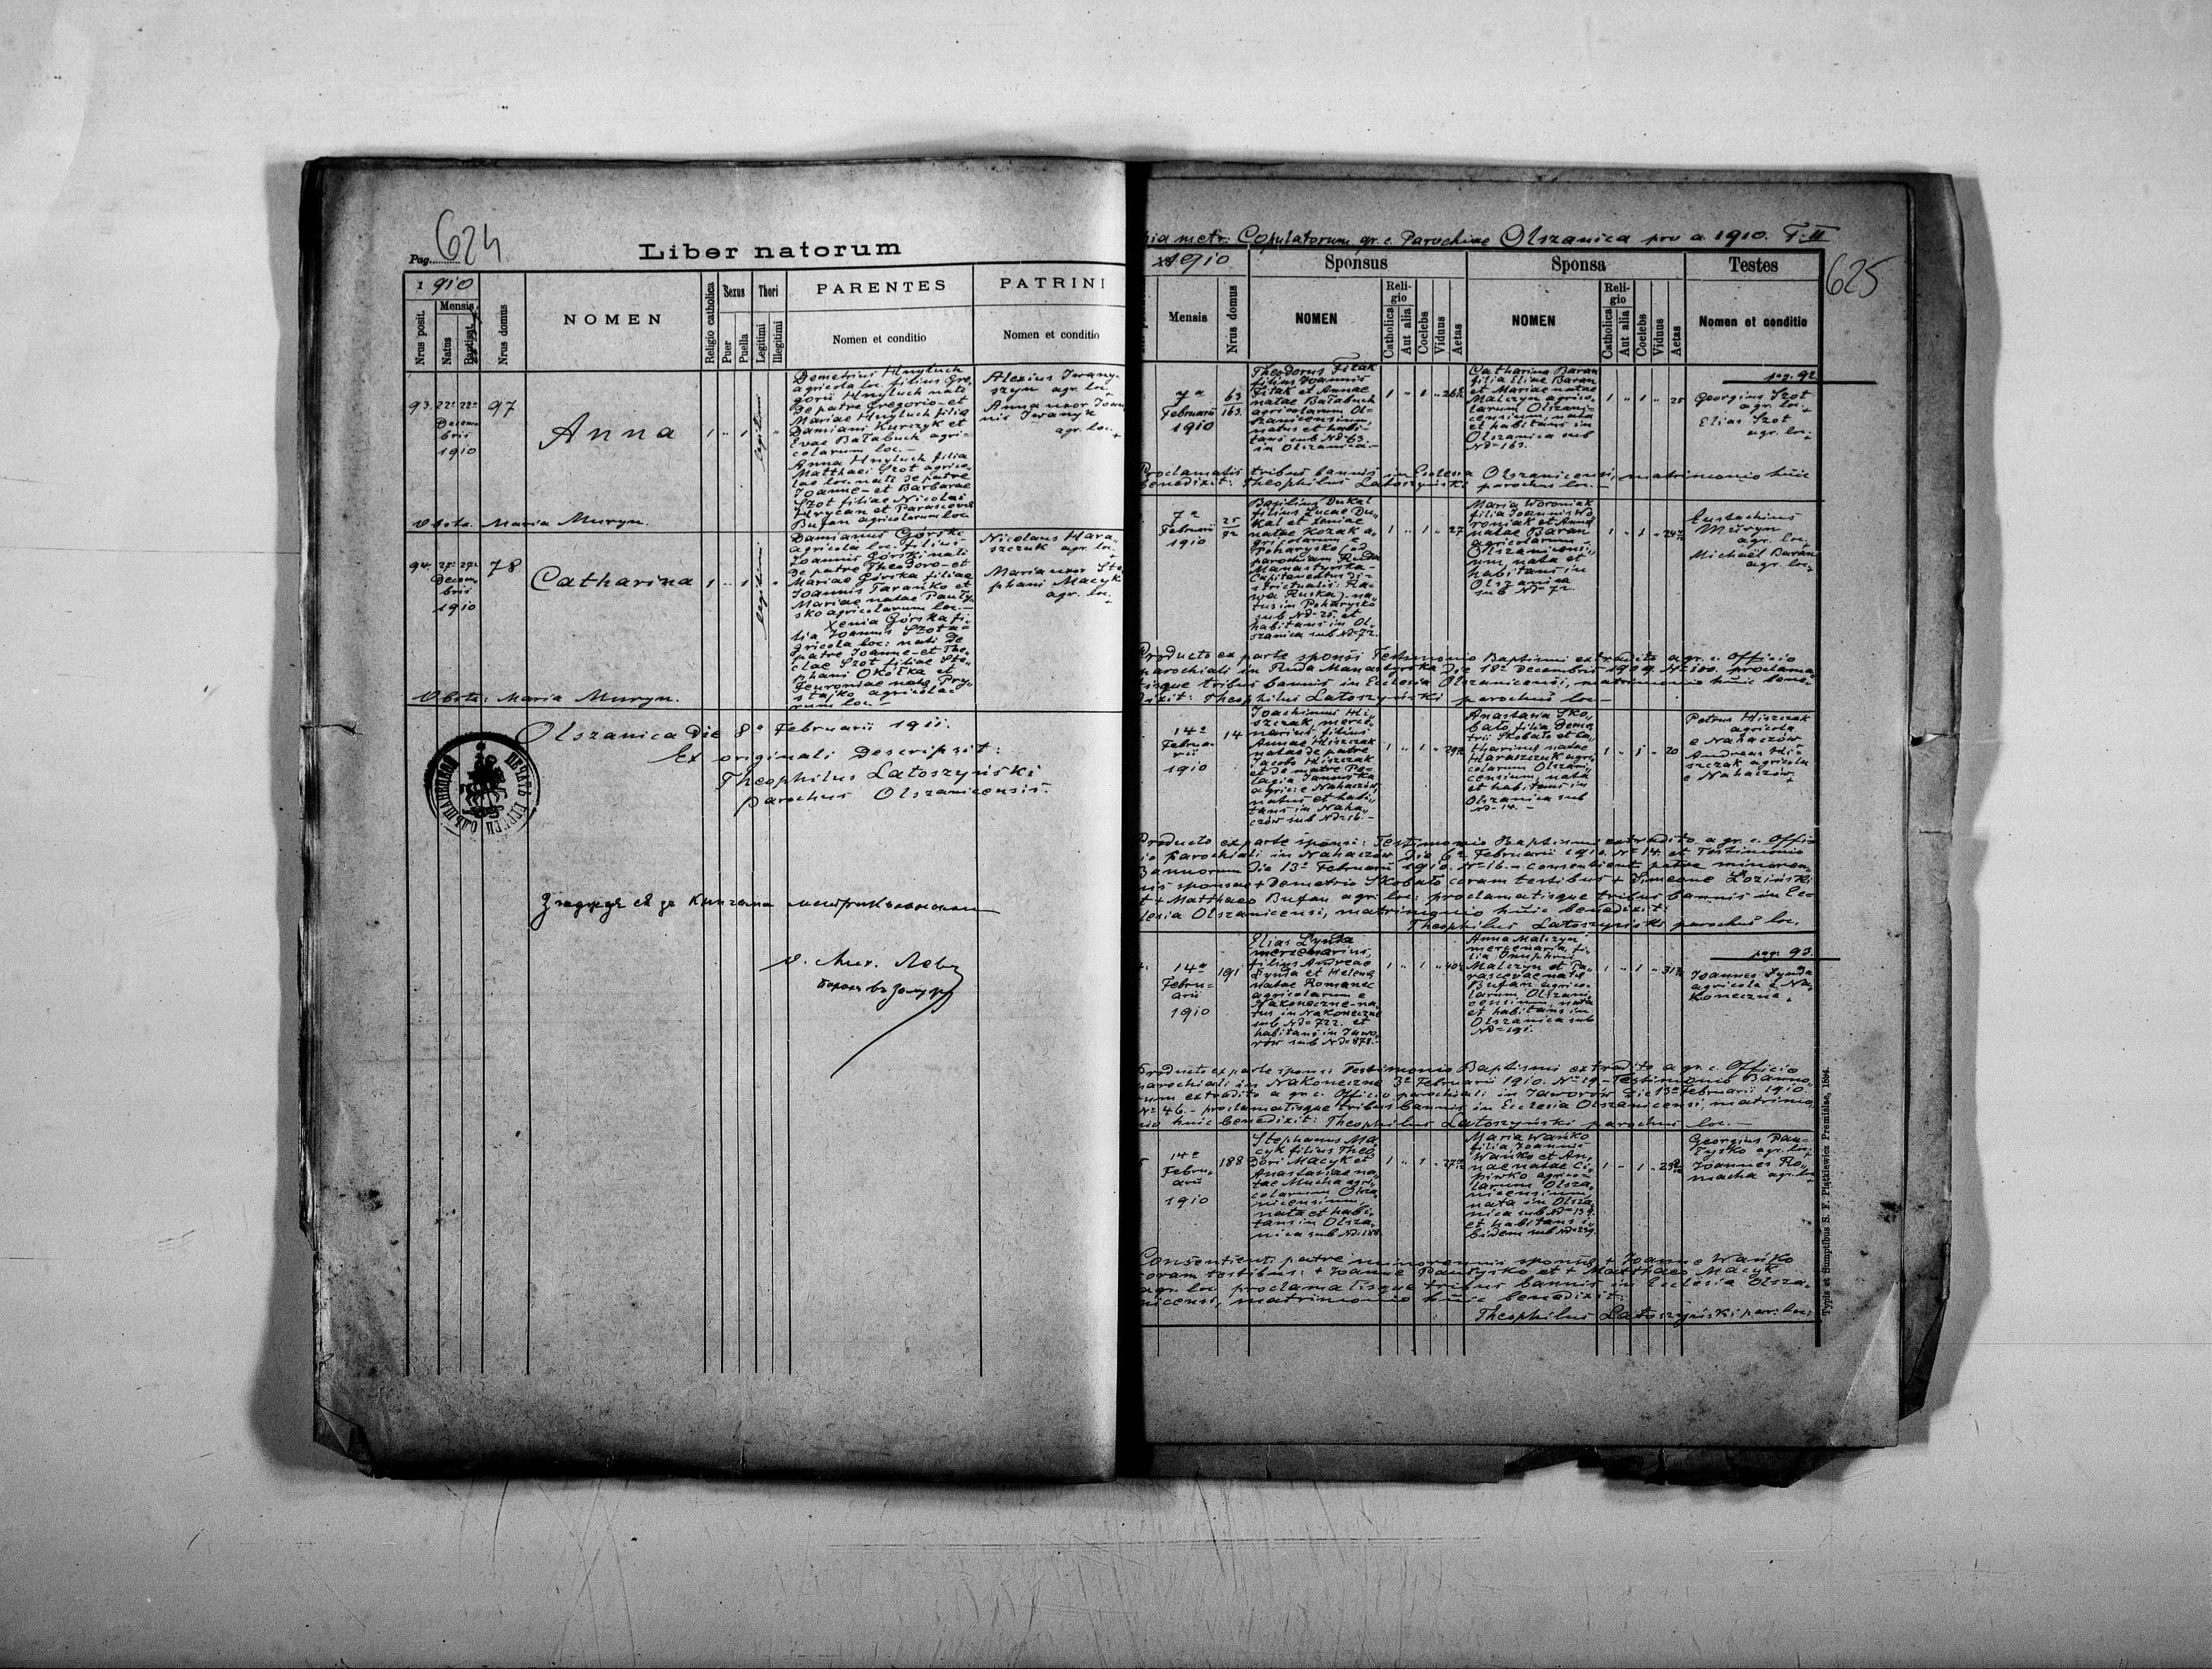 Pag. 624
Liber natorum
1 910
Nrus posit.
Mensis
Natus
Baptisat.
Nrus domus
NOMEN
Religio catholica
Sexus
Puer
Puella
Thori
Legitimi
Illegitimi
PARENTES
Nomen et conditio
PATRINI
Nomen et conditio
93. 22a 22a
Decem-
bris
1910
97
Anna
1 " 1
legitimi "
Demetrius Hnyluch
agricola loc. filius Gre-
gorii Hnyluch nati
de patre Gregorio - et
Mariae Hnyluch filia
Damiani Kurczyk et
Evae Bałabuch agri-
colarum loc. -
Anna Hnyluch filia
Matthaei Szot agrico-
lae loc. nati de patre
Joanne - et Barbarae
Szot filiae Nicolai
Hrycan et Parascevae
Bufan agricolarum loc.
Alexius Iwany-
szyn agr. loc.
+
Anna uxor Joan-
nis Iwanyk
agr. loc.
+
Obstx. Maria Muryn.
94. 27a 27a
Decem-
bris
1910
78
Catharina
1 " 1
legitimi "
Damianus Górski
agricola loc. filius
Joannis Górski nati
de patre Theodoro - et
Mariae Górska filiae
Joannis Tarańko et
Mariae natae Pauły-
sko agricolarum loc. -
Xenia Górska fi-
lia Joannis Szot a-
gricola loc: nati de
patre Joanne - et The-
clae Szot filiae Ste-
phani Okołka et
Feuroniae natae Pry-
stajko agricola-
rum loc. -
Nicolaus Hara-
szczuk agr. loc.
+
Maria uxor Ste-
phani Macyk
agr. loc.
+
Obstx: Maria Muryn.
Olszanica die 8a Februarii 1911.
Ex originali descripsit:
Theophilus Latoszyński
parochus Olszanicensis.
metr: Copulatorum gr. c. Parochiae Olszanica pro a. 1910. T: II
625
1910
Mensis
Nrus domus
Sponsus
NOMEN
Religio
Catholica
Aut alia
Coelebs
Viduus
Aetas
Sponsa
NOMEN
Religio
Catholica
Aut alia
Coelebs
Viduus
Aetas
Testes
Nomen et conditio
pag. 92
7a
Februarii
1910
63
163.
Theodorus Fitak
filius Joannis
Fitak et Annae
natae Bałabuch
agricolarum Ol-
szanicensium,
natus et habi-
tans sub Nd= 63.
in Olszanica. -
1 " 1 "
Catharina Baran
filia Eliae Baran
et Mariae natae
Malczyn agrico-
larum Olszani-
censium, nata
et habitans in
Olszanica sub
Nd= 163.
1 " 1 " 25
Georgius Szot
agr. loc.
+
Elias Szot
agr. loc.
+
Proclamatis tribus bannis in Ecclesia Olszanicensi, matrimonio huic
benedixit: Theophilus Latoszyński parochus loc. -
7a
Februarii
1910
25
72
Basilius Dukal
filius Lucae Du-
kal et Xeniae
natae Kozak a-
gricolarum e
Poharysko (ad
parochiam Ruda
Manastyrska -
Capitaneatus di-
strictualis: Ra-
wa Ruska) - na-
tus in Poharysko
sub Nd= 25. et
habitans in Ol-
szanica sub Nd= 72.
1 " 1 " 27
Maria Woroniak
filia Joannis Wo-
roniak et Annae
natae Baran
agricolarum
Olszanicensi-
um, nata et
habitans in
Olszanica
sub Nd= 72.
1 " 1 "
Eustachius
Muryn
agr. loc.
+
Michaël Baran
agr. loc.
+
Producto ex parte sponsi Testimonio Baptismi extradito a gr. c. Officio
parochiali in Ruda Manastyrska die 18a Decembris 1909. No 100. proclama-
tisque tribus bannis in Ecclesia Olszanicensi, matrimonio huic bene-
dixit: Theophilus Latoszyński parochus loc -
14a
Februa-
rii
1910
14
Joachimus Hli-
szczak, merce-
narius, filius
Annae Hliszczak
natae de patre
Jacobo Hliszczak
et de matre Pe-
lagia Janowska
agric: e Nahaczów
natus et habi-
tans in Naha-
czów sub Nd= 16. -
1 " 1 "
Anastasia Sko-
bało, filia Deme-
trii Skobało et Ca-
tharinae natae
Haraszczuk agri-
colarum Olszani-
censium, nata
et habitans in
Olszanica sub
Nd= 14. -
1 " 1 " 20
Petrus Hliszczak
agricola
e Nahaczów
Andreas Hli-
szczak agricola
e Nahaczów
+
Producto ex parte sponsi: Testimonio Baptismi extradito a gr. c. Offi-
cio parochiali in Nahaczów die 6a Februarii 1910. No 14. et Testimonio
Bannorum die 13a Februarii 1910. No 16. - consentient: patre minoren-
nis sponsae + Demetrio Skobało coram testibus + Simeone Łoziński
et + Matthaeo Bufan agr. loc. proclamatisque tribus bannis in Ec-
clesia Olszanicensi, matrimonio huic benedixit:
Theophilus Latoszyński parochus loc.
pag: 93.
14a
Febru-
arii
1910
191
Elias Łynda
mercenarius,
filius Andreae
Łynda et Helenae
natae Romanec
agricolarum e
Nakoneczne - na-
tus in Nakoneczne
sub Nd= 722. et
habitans in Jawo-
rów sub Nd= 878. -
1 " 1 "
Anna Malczyn
mercenaria, fi-
lia Onuphrii
Malczyn et Pa-
rascevae natae
Bufan agrico-
larum Olszani-
censium, nata
et habitans in
Olszanica sub
Nd= 191.
1 " 1 "
Joannes Łynda
agricola e Na-
koneczne.
Producto ex parte sponsi Testimonio Baptismi extradito a gr. c. Officio
parochiali in Nakoneczne 3a Februarii 1910. No 19 - Testimonio Banno-
rum extradito a gr. c. Officio parochiali in Jaworów die 13a Februarii 1910
No 46. - proclamatisque tribus bannis in Ecclesia Olszanicensi, matrimo-
nio huic benedixit: Theophilus Latoszyński parochus loc. -
14a
Febru-
arii
1910
188
Stephanus Ma-
cyk filius Theo-
dori Macyk et
Anastasiae na-
tae Mucha agri-
colarum Olsza-
nicensium,
nata et habi-
tans in Olsza-
nica sub Nd: 188.
1 " 1 "
Maria Wańko
filia Joannis
Wańko et An-
nae natae Ci-
piwko agrico-
larum Olsza-
nicensium
nata in Olsza-
nica sub Nd= 139.
et habitans i-
bidem sub Nd= 239.
1 " 1 "
Georgius Pau-
łysko agr. loc.
+
Joannes Ro-
macha agr. loc.
+
Consentient: patre minorennis sponsae + Joanne Wańko
coram testibus: + Joanne Paułysko et + Matthaeo Macyk
agr. loc. proclamatisque tribus bannis in Ecclesia Olsza-
nicensi, matrimonio huic benedixit:
Theophilus Latoszyński par: loc:
Typis et Sumptibus S. F. Piątkiewicz Premisliae, 1894.